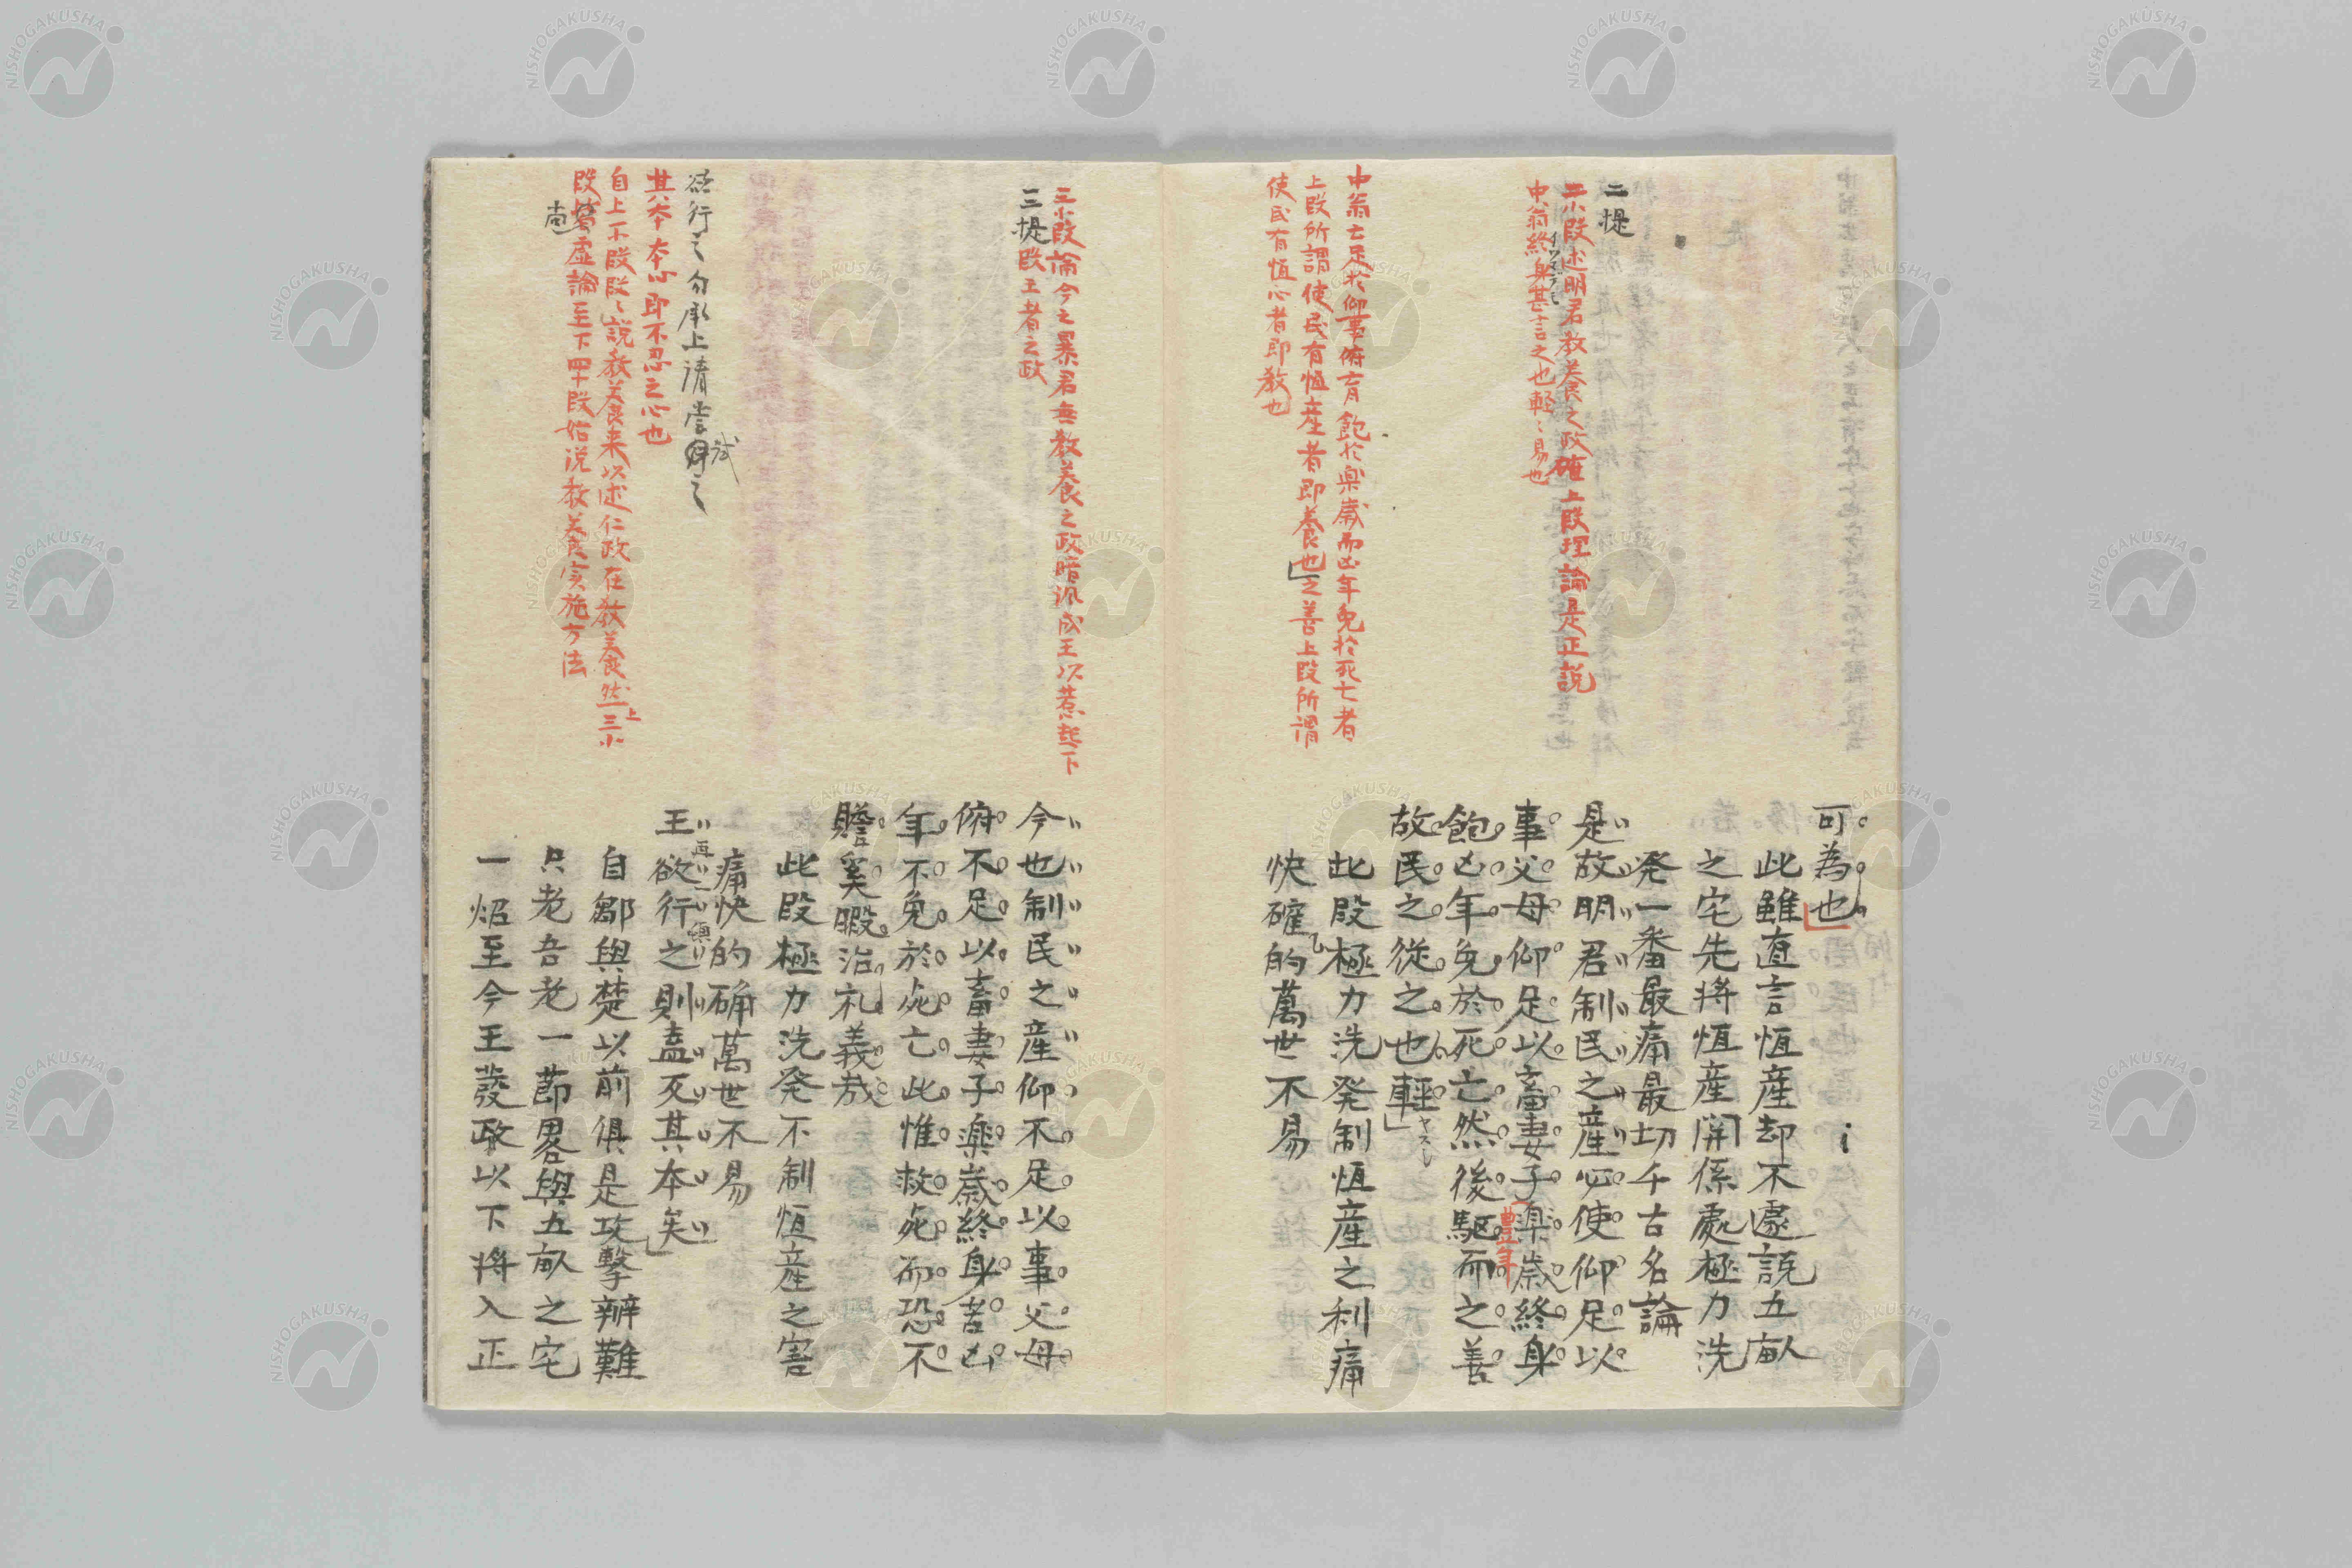 二提
二小段述明君教養之政確上段理論是正説
中翁終身甚言之也軽〻易也
イツマデモ
中翁云足於仰事俯育飽於楽歳而凶年免於死亡者
上段所謂使民有恆産者即養也之善上段所謂
使民有恆心者即教也
可為也
此雖直言恆産却不遽説五畝
之宅先將恆産関係處極力洗
発一番最痛最切千古名論
是故明君制民之産必使仰足以
事父母仰足以畜妻子楽歳終身
豊年
飽凶年免於死亡然後駆而之善
故民之従之也軽
ヤスシ
此段極力洗発制恆産之利痛
快確的萬世不易
三小段論今之暴君無教養之政暗諷成王以惹起下
三提段王者之政
欲行之勿承上請嘗試之
其本本心即不忍之心也
自上不段段〻説教養来以述仁政在教養然上三小
段尚虚論至下四小段始説教養実施方法
今也制民之産仰不足以事父母
俯不足以畜妻子楽歳終身苦凶
年不免於死亡此惟救死而恐不
贍奚暇治礼義哉
此段極力洗発不制恆産之害
痛快的确萬世不易
王欲行之則盍反其本矣
自鄒與楚以前俱是攻撃辨難
只老吾老一節畧與五畝之宅
一炤至今王發政以下將入正